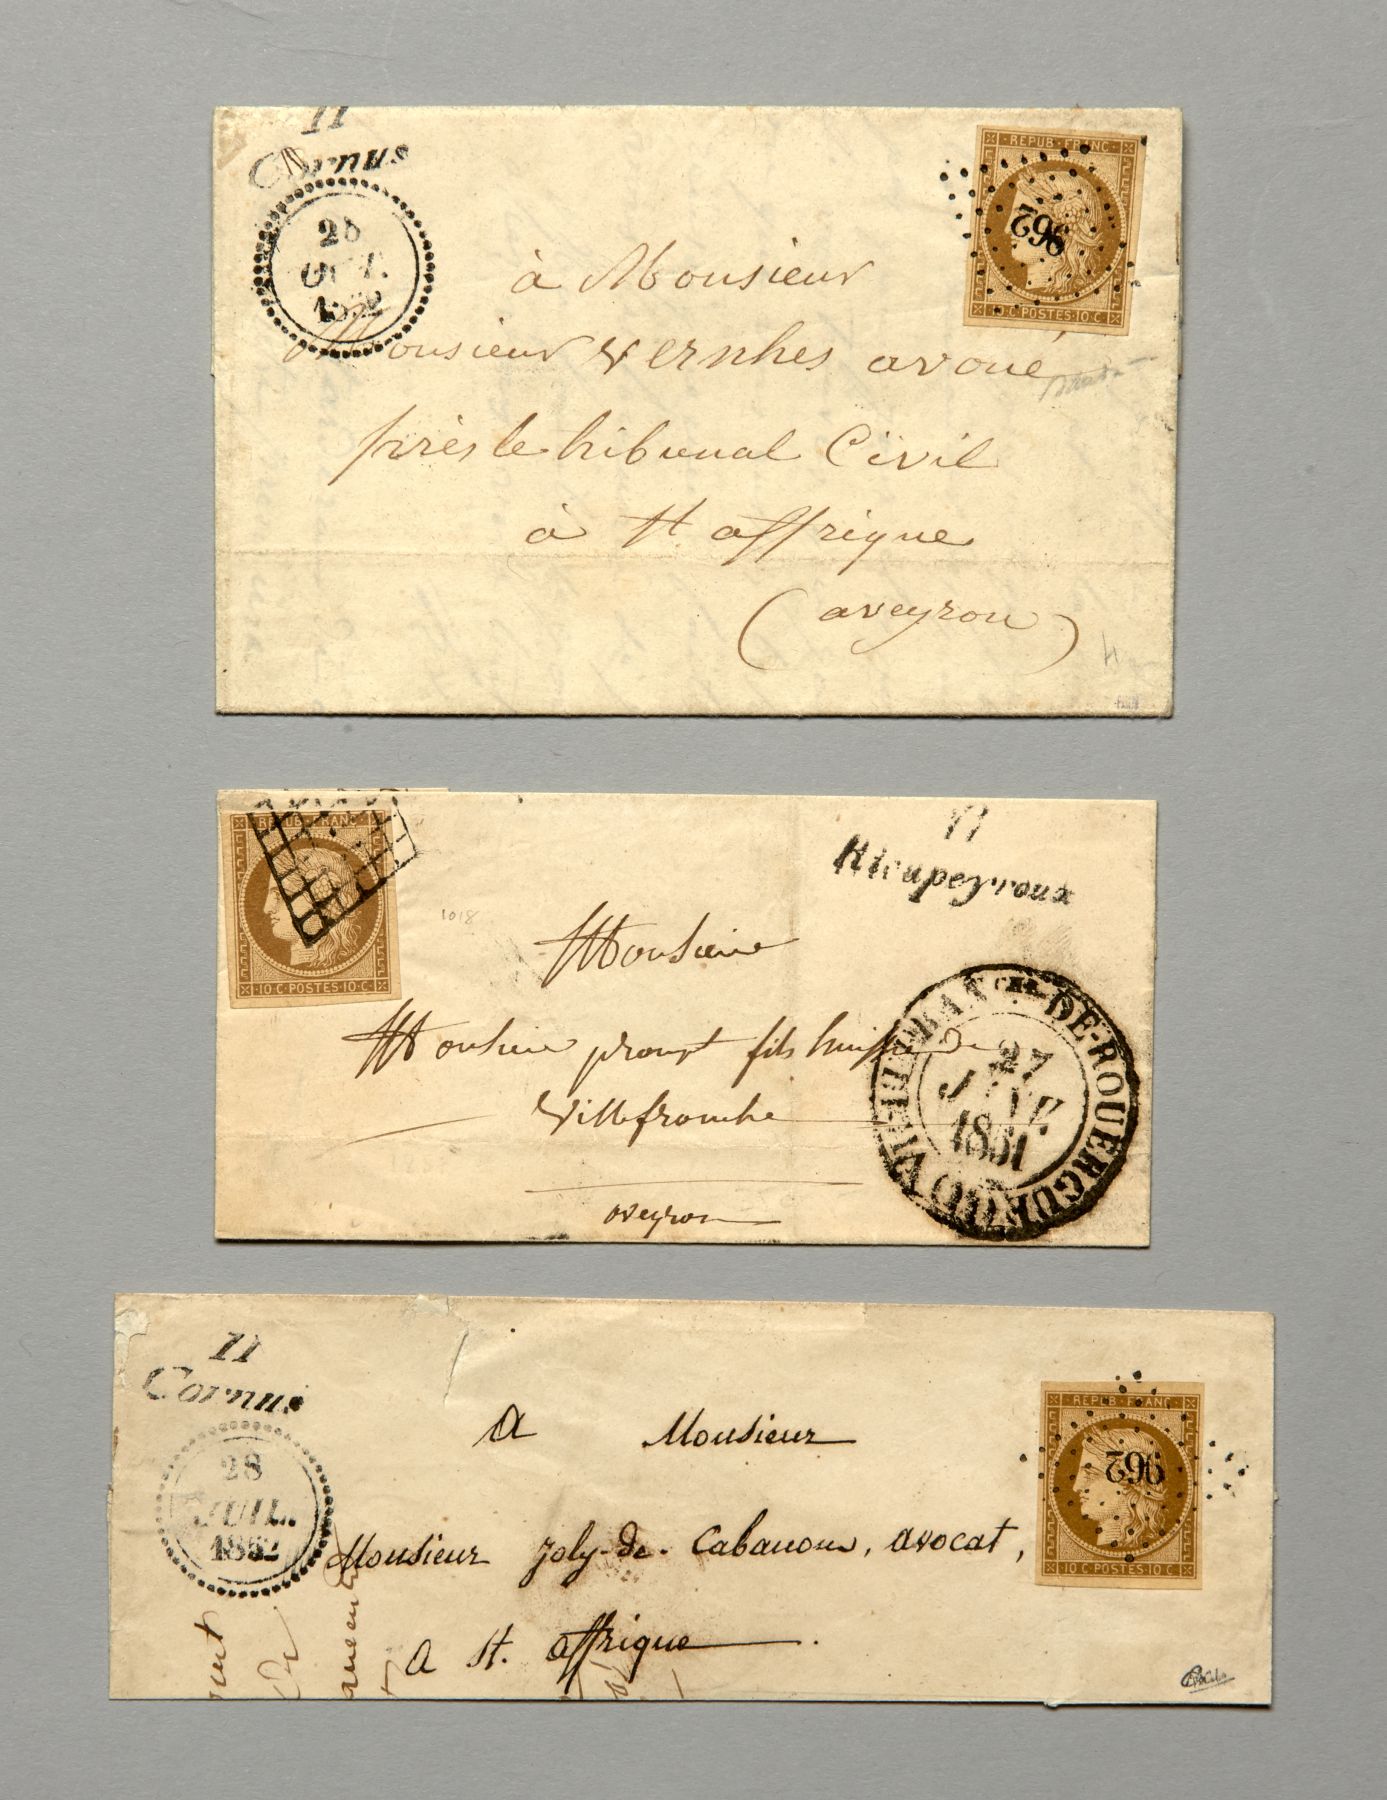 11
Cornus
OCT.
1852
REPUB · FRANC ·
962
· 10 · C · POSTES · 10 · C ·
à Monsieur
Monsieur Vernhes avoué
près le tribunal Civil
à St affrique
(aveyron)
REPUB · FRANC ·
· 10 · C · POSTES · 10 · C ·
1018
11
Rieupeyroux
Monsieur
Monsieur prompt fils huissier de
Villefranche
aveyron
VILLEFRANCHE-DE-ROUERGUE (11)
27
JANV.
1851
11
Cornus
28
JUIL.
1852
REPUB · FRANC ·
962
· 10 · C · POSTES · 10 · C ·
A Monsieur
Monsieur Joly-de-Cabanous, avocat,
A St. affrique